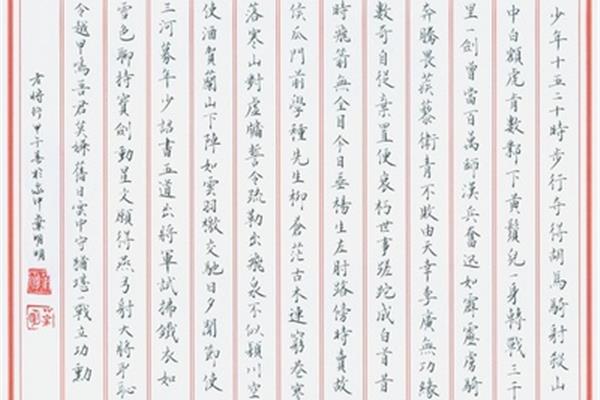 少年十五二十時步行奪得胡馬騎射殺山
中白額虎肯數鄴下黃鬚兒一身轉戰三千
里一劍曾當百萬師漢兵奮迅如霹靂虜騎
奔騰畏蒺藜衛青不敗由天幸李廣無功緣
數奇自從棄置便衰朽世事蹉跎成白首昔
時飛箭無全目今日垂楊生左肘路傍時賣故
侯瓜門前學種先生柳蒼茫古木連窮巷寥
落寒山對虛牖誓令疏勒出飛泉不似潁川空
使酒賀蘭山下陣如雲羽檄交馳日夕聞節使
三河募年少詔書五道出將軍試拂鐵衣如
雪色聊持寶劍動星文願得燕弓射大將恥
令越甲鳴吾君莫嫌舊日雲中守猶堪一戰立功勳
老將行 甲 於 中 葉明明